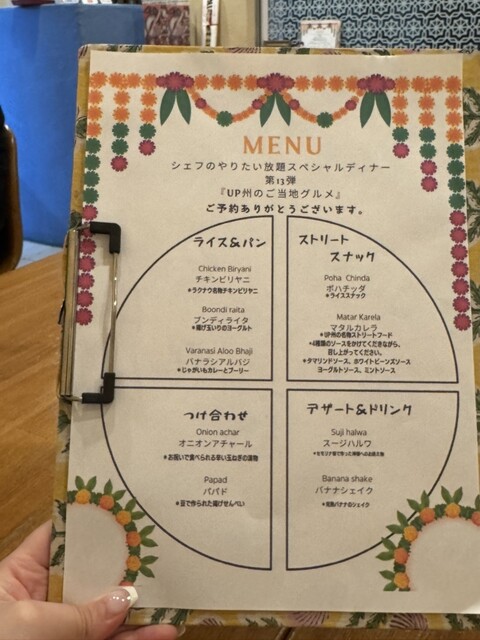 MENU
シェフのやりたい放題スペシャルディナー
第13弾
『UP州のご当地グルメ』
ご予約ありがとうございます。
ライス&パン
Chicken Biryani
チキンビリヤニ
*ラクナウ名物チキンビリヤニ
Boondi raita
ブンディライタ
*揚げ玉いりのヨーグルト
Varanasi Aloo Bhaji
バナラシアルバジ
*じゃがいもカレーとプーリー
ストリート
スナック
Poha Chinda
ポハチッダ
*ライススナック
Matar Karela
マタルカレラ
*UP州の名物ストリートフード
*4種類のソースをかけてくだきながら、
召し上がってください。
*タマリンドソース、ホワイトビーンズソース
ヨーグルトソース、ミントソース
つけ合わせ
Onion achar
オニオンアチャール
*お祝いで食べられる辛い玉ねぎの漬物
Papad
パパド
*豆で作られた揚げせんべい
デザート&ドリンク
Suji halwa
スージハルワ
*セモリナ粉で作った神様へのお供え物
Banana shake
バナナシェイク
*完熟バナナのシェイク